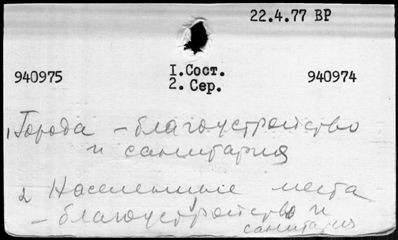 22.4.77 ВР
940975 1.Сост. 940974
2. Сер.
1 Города - благоустройство
и санитария
2 Населенные места
- благоустройство и
санитария